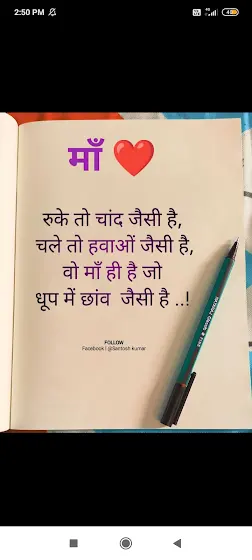 2:50 PM
माँ
रुके तो चांद जैसी है,
चले तो हवाओं जैसी है,
वो माँ ही है जो
धूप में छांव जैसी है ..!
FOLLOW
Facebook | @Santosh kumar